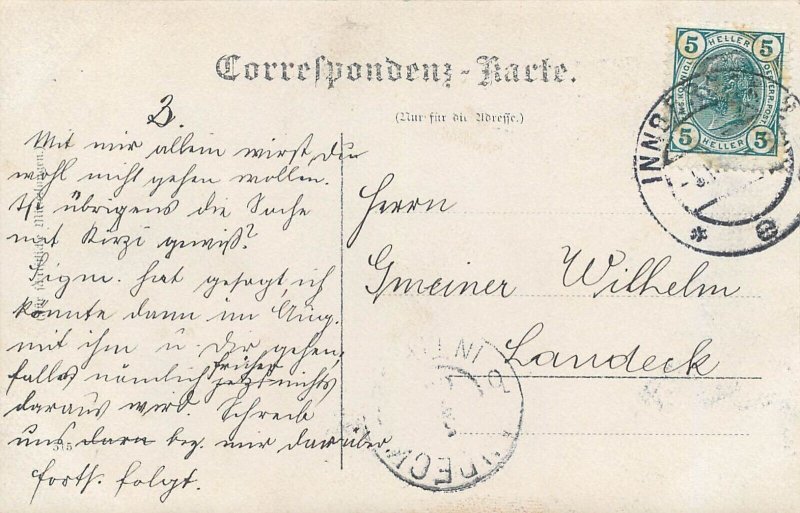 Correspondenz-Karte.
(Nur für die Adresse.)
3.
Mit mir allein wirst Du
wohl nicht gehen wollen.
Ist übrigens die Sache
mit Kirzi gewiß?
Sigm. hat gesagt ich
könnte dann im Aug.
mit ihm u. Dir gehen,
falls nämlich früher jetzt nichts
daraus wird. Schreib
uns dara bez. mir darüber
forts. folgt.
315
Herrn
Gmeiner Wilhelm
Landeck
5 HELLER 5
5 HELLER 5
INNSBR
DECK